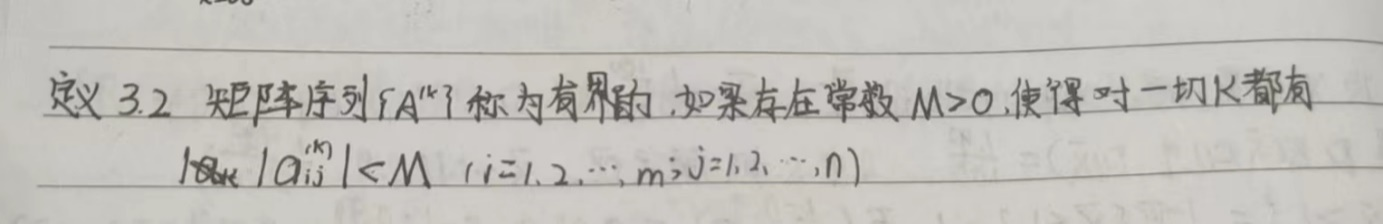 定义 3.2 矩阵序列{A⁽ᵏ⁾}称为有界的,如果存在常数 M>0,使得对一切K都有
|aᵢⱼ⁽ᵏ⁾|<M (i=1,2,⋯,m;j=1,2,⋯,n)